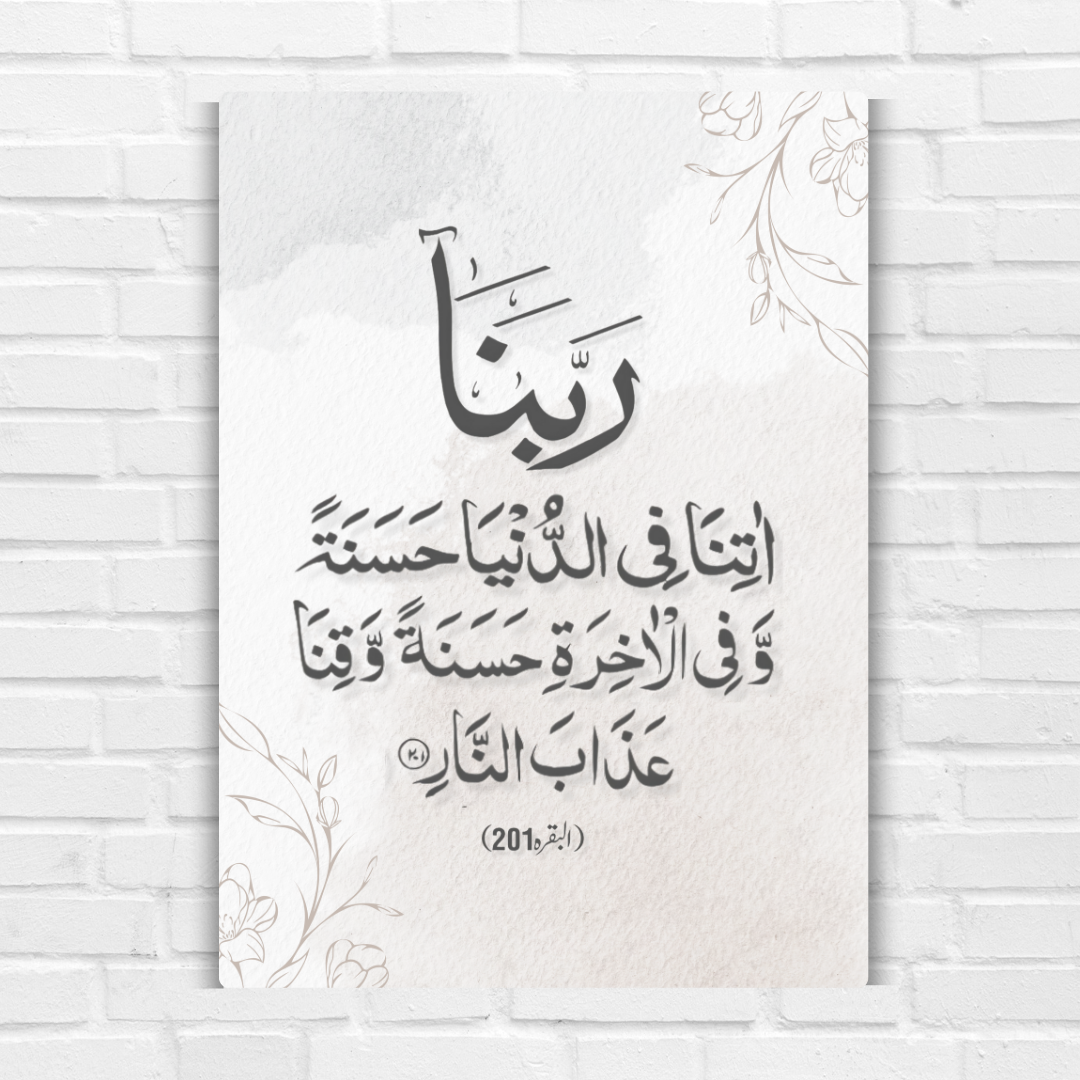 رَبَّنَاۤ
اٰتِنَا فِی الدُّنْیَا حَسَنَةً
وَّ فِی الْاٰخِرَةِ حَسَنَةً وَّقِنَا
عَذَابَ النَّارِ ۲۰۱
(البقرہ201)